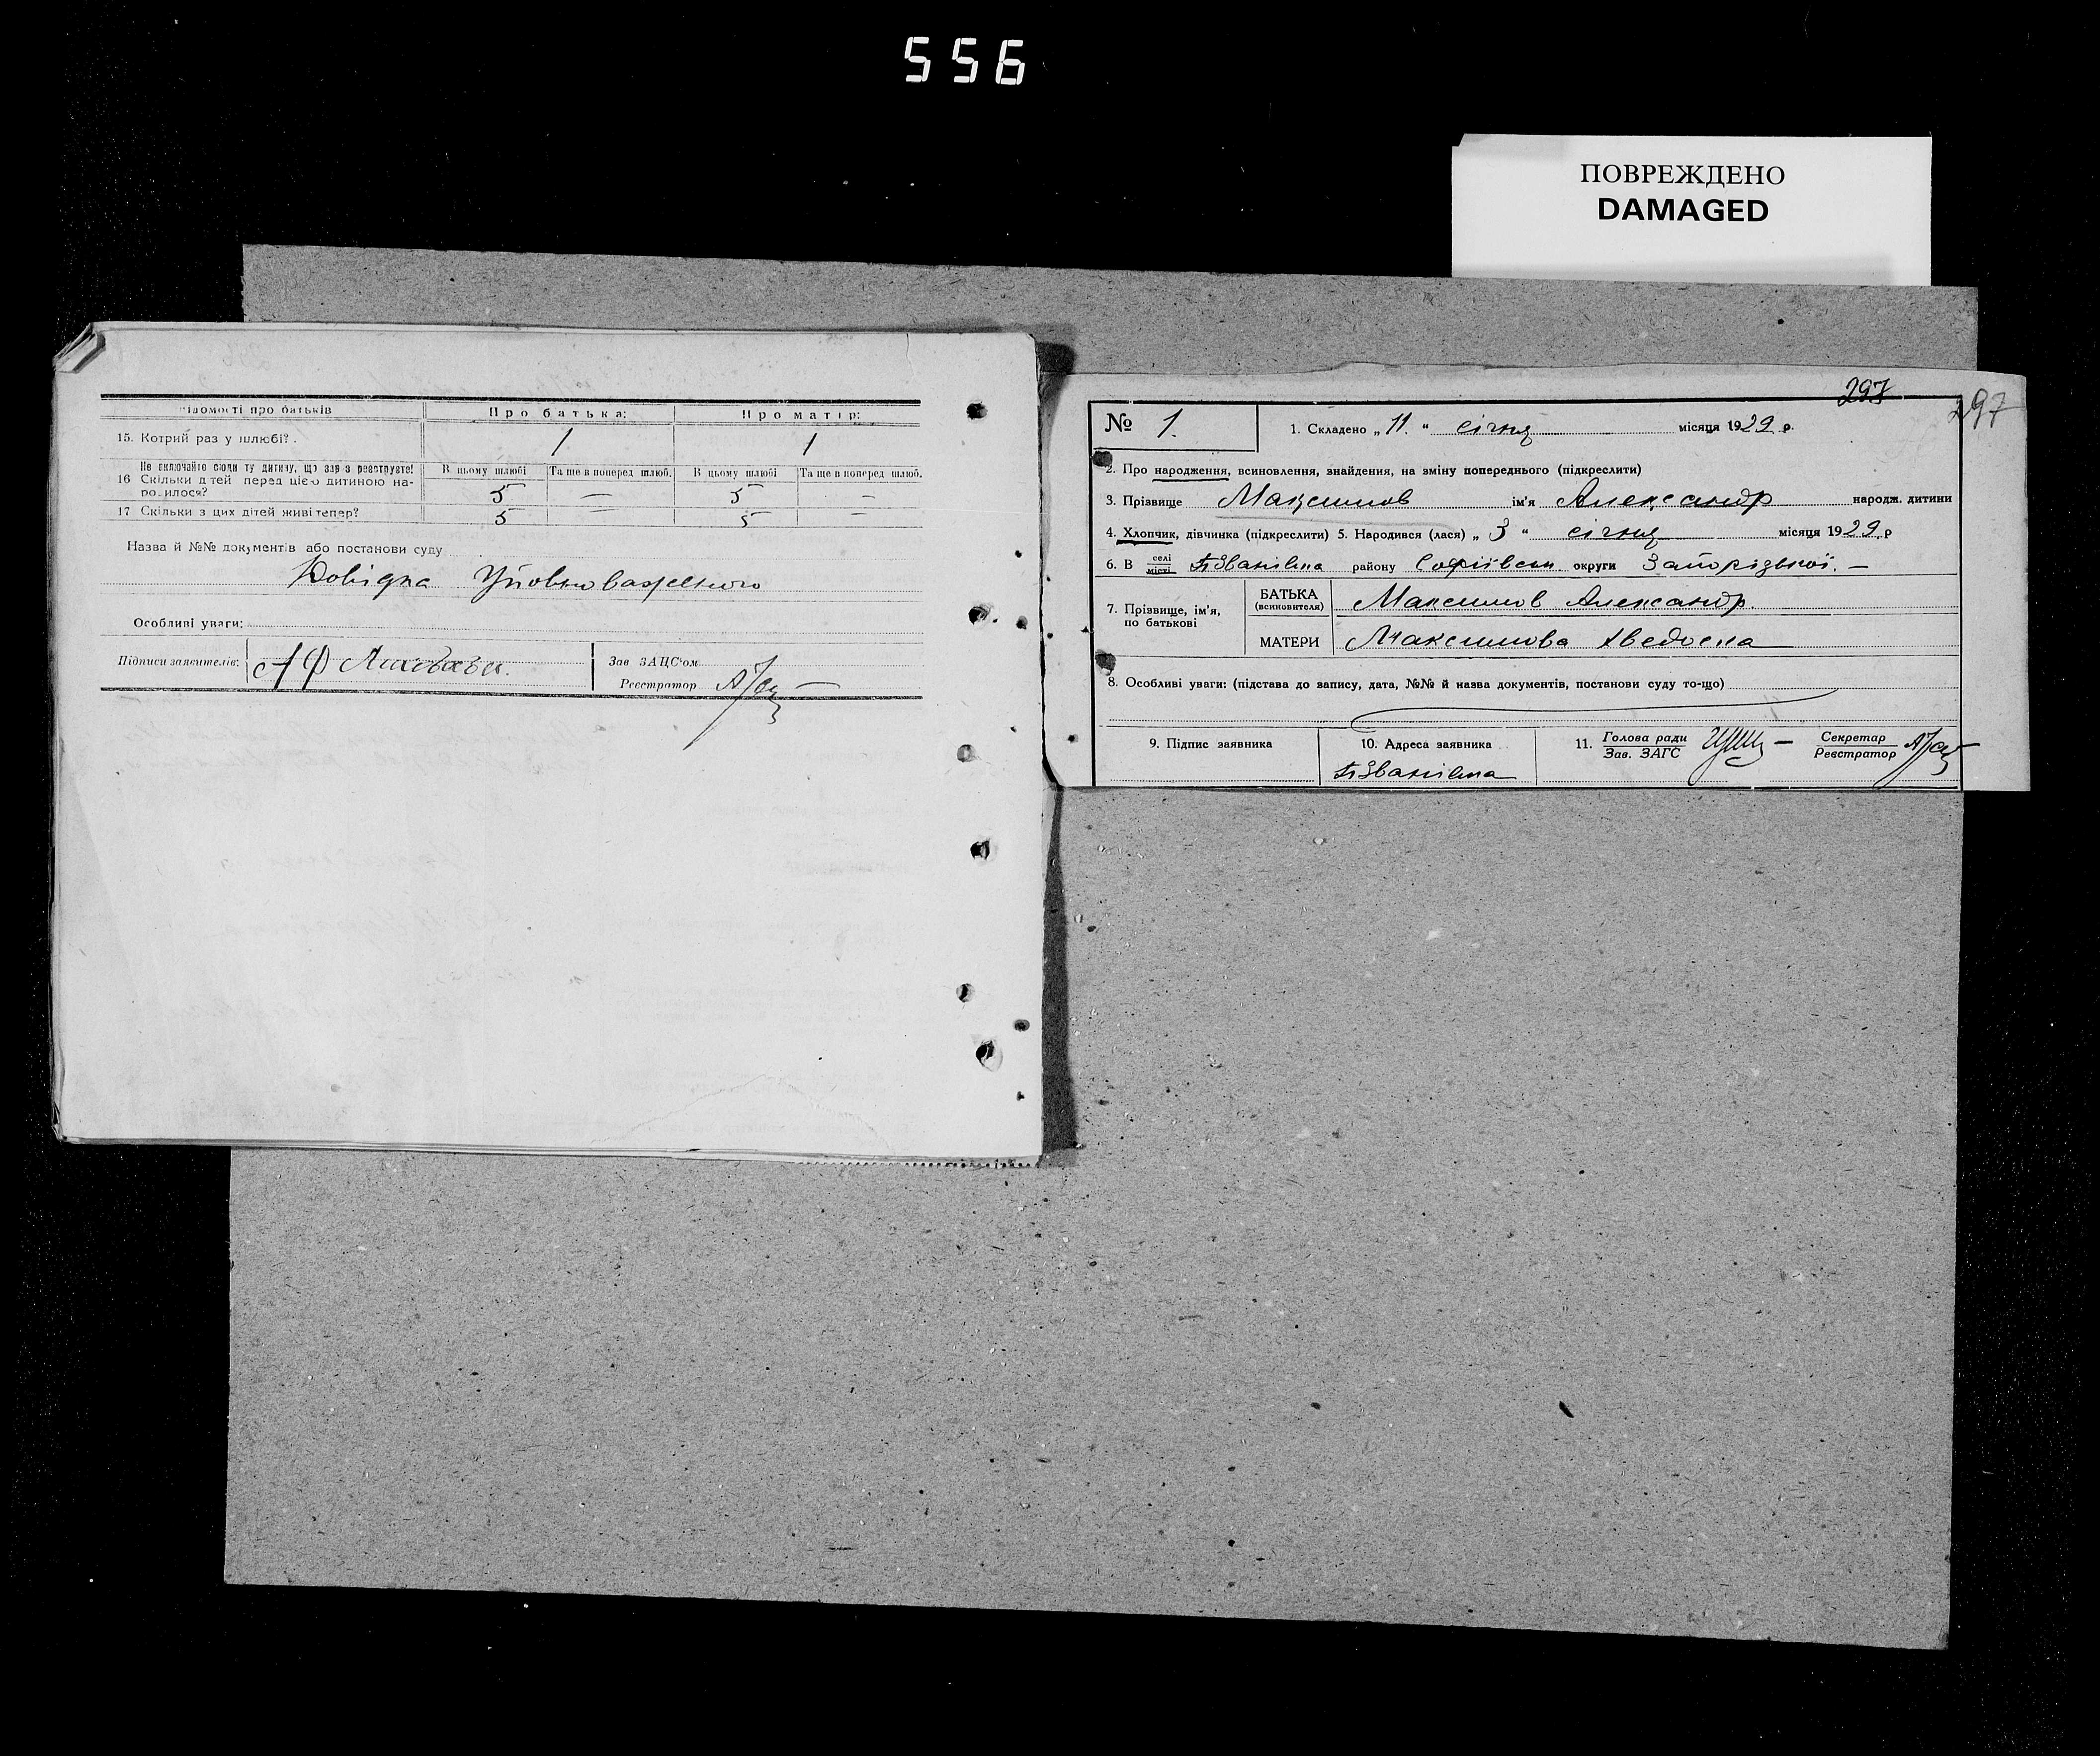 556
ПОВРЕЖДЕНО
DAMAGED
Відомості про батьків
Про батька:
Про матір:
15. Котрий раз у шлюбі?
1
1
Не включайте сюди ту дитину, що зараз реєструєте!
16 Скільки дітей перед цією дитиною народилося?
В цьому шлюбі
Та ще в поперед. шлюб.
В цьому шлюбі
Та ще в поперед. шлюб.
5 — 5 —
17 Скільки з цих дітей живі тепер?
5 — 5 —
Назва й №№ документів або постанови суду
Довідка Уповноваженого
Особливі уваги:
Підписи заявителів:
Зав ЗАЦС'ом
Реєстратор
297
297
№ 1.
1. Складено „ 11. “ січня місяця 1929 р.
2. Про народження, всиновлення, знайдення, на зміну попереднього (підкреслити)
3. Прізвище Максимов ім'я Александр народж. дитини
4. Хлопчик, дівчинка (підкреслити) 5. Народився (лася) „ 3 “ січня місяця 1929 р
6. В селі місті району Софіївськ. округи Запорізької. —
7. Прізвище, ім'я, по батькові
БАТЬКА (всиновителя) Максимов Александр.
МАТЕРИ Максимова Хведоска
8. Особливі уваги: (підстава до запису, дата, №№ й назва документів, постанови суду то-що)
9. Підпис заявника
10. Адреса заявника
11. Голова ради Зав. ЗАГС
Секретар Реєстратор